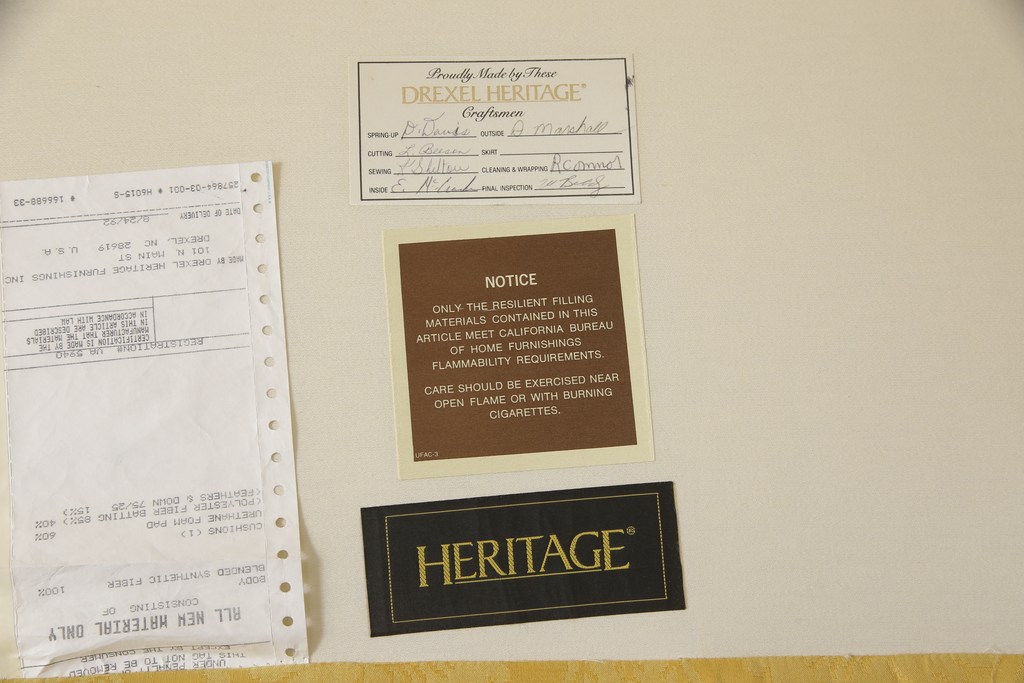 Proudly Made by These
DREXEL HERITAGE®
Craftsmen
SPRING-UP D. Davis OUTSIDE D Marshall
CUTTING L. Beeson SKIRT
SEWING Shelton CLEANING & WRAPPING R Connor
INSIDE E. FINAL INSPECTION
NOTICE
ONLY THE RESILIENT FILLING
MATERIALS CONTAINED IN THIS
ARTICLE MEET CALIFORNIA BUREAU
OF HOME FURNISHINGS
FLAMMABILITY REQUIREMENTS.
CARE SHOULD BE EXERCISED NEAR
OPEN FLAME OR WITH BURNING
CIGARETTES.
UFAC-3
HERITAGE®
UNDER PENALTY
THIS TAG NOT TO BE REMOVED
EXCEPT BY THE CONSUMER
ALL NEW MATERIAL ONLY
CONSISTING OF
BODY
BLENDED SYNTHETIC FIBER 100%
CUSHIONS (1)
URETHANE FOAM PAD 60%
(POLYESTER FIBER BATTING 85%) 40%
(FEATHERS & DOWN 75/25 15%)
REGISTRATION# VA 5940
CERTIFICATION IS MADE BY THE
MANUFACTURER THAT THE MATERIALS
IN THIS ARTICLE ARE DESCRIBED
IN ACCORDANCE WITH LAW.
MADE BY DREXEL HERITAGE FURNISHINGS INC
101 N. MAIN ST
DREXEL, NC 28619 U.S.A.
DATE OF DELIVERY 8/24/92
257864-03-001 * H6015-S * 166688-33